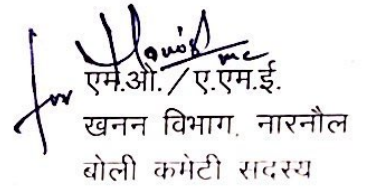 for
एम.ओ./ए.एम.ई.
खनन विभाग, नारनौल
बोली कमेटी सदस्य